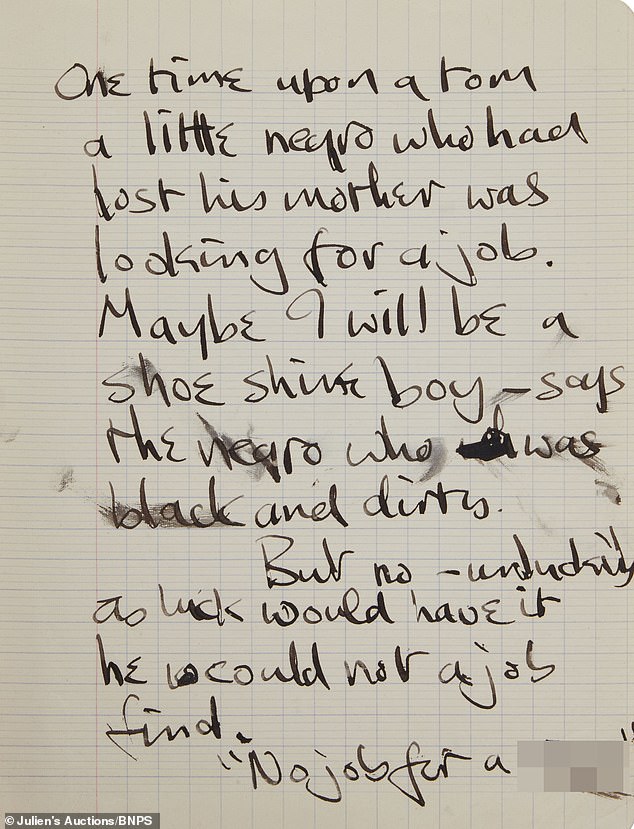 One time upon a tom
a little negro who had
lost his mother was
looking for a job.
Maybe I will be a
shoe shine boy – says
the negro who was
black and dirty.
But no – unluckily
as luck would have it
he could not a job
find.
"No job for a
Julien's Auctions/BNPS